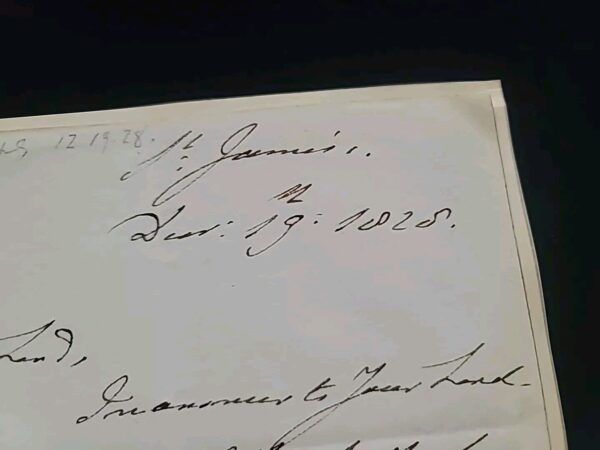 12 19 28.
St. James's.
Decr: 19th: 1828.
Lord,
In answer to Your Lord-